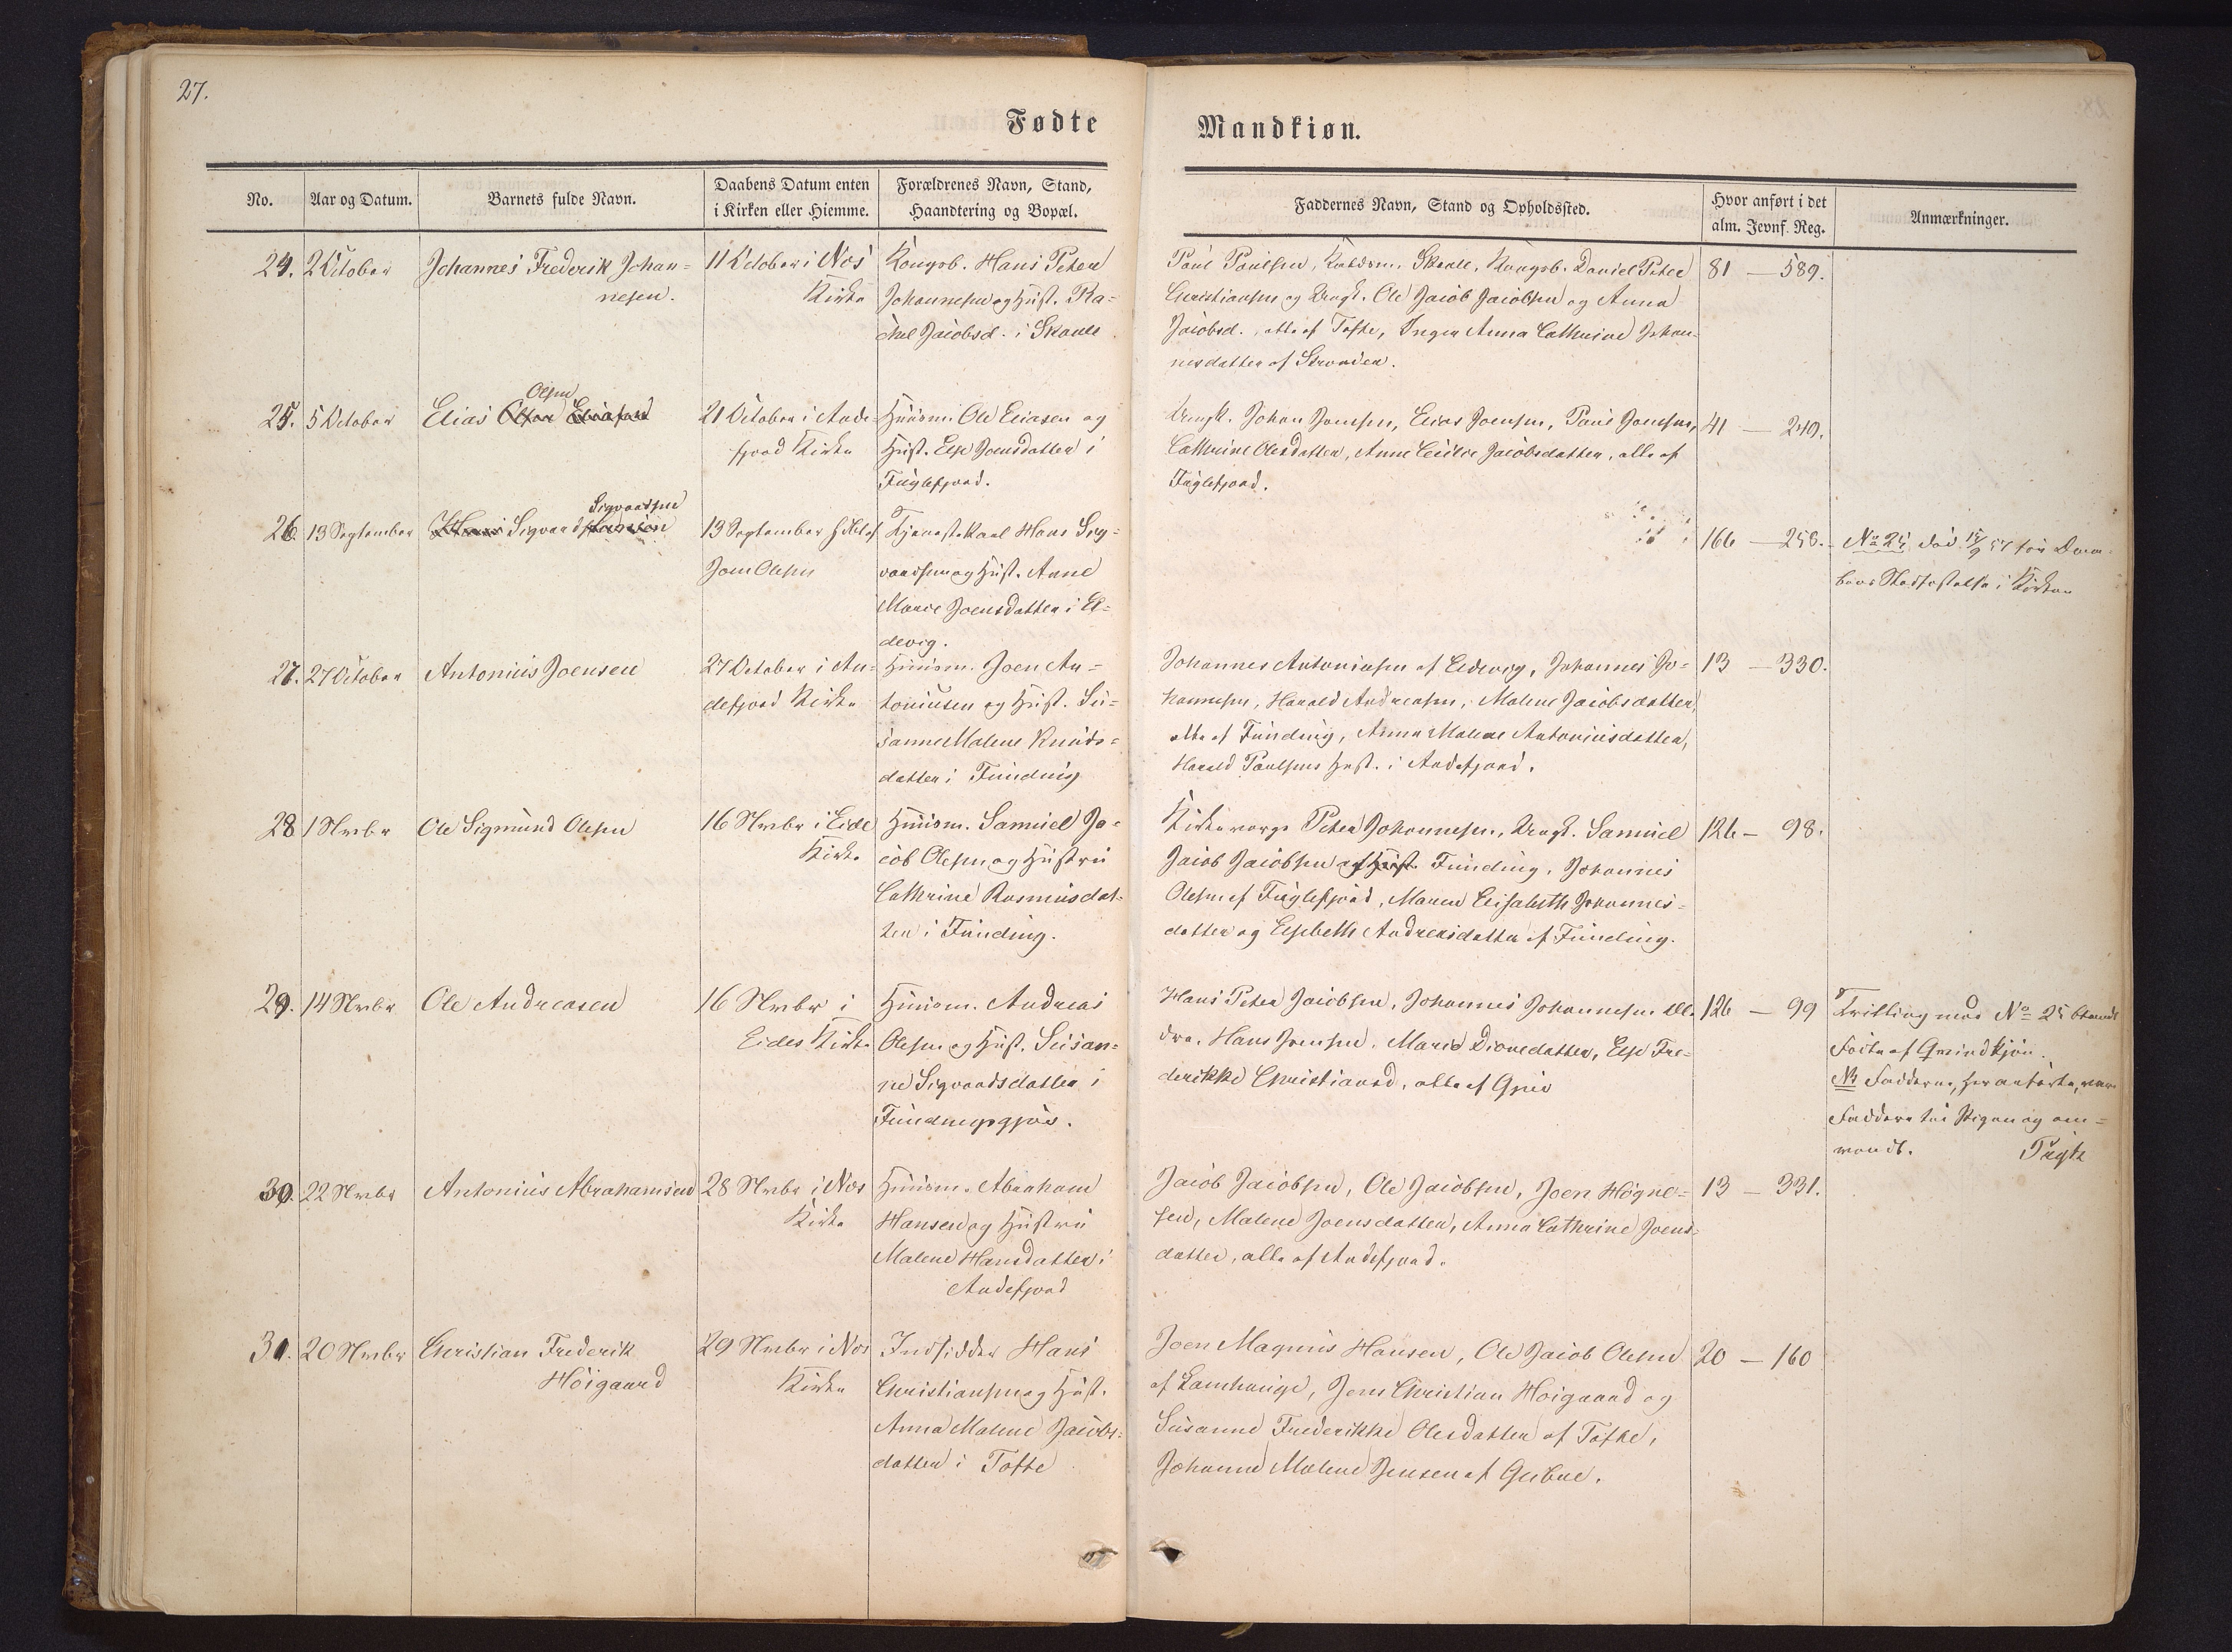 27.
Fødte
Mandkiøn.
No.
Aar og Datum.
Barnets fulde Navn.
Daabens Datum enten
i Kirken eller Hiemme.
Forældrenes Navn, Stand,
Haandtering og Bopæl.
Faddernes Navn, Stand og Opholdssted.
Hvor anført i det
alm. Jevnf. Reg.
Anmærkninger.
24.
2 October
Johannes Frederik Johan=
nesen.
11 October i Nes
Kirke
Kongsb. Hans Peter
Johannesen og Hust. Ra=
chel Jacobsd. i Skaale
Poul Poulsen, Skaale, Kongsb. Daniel Peter
Christiansen og Ungk. Ole Jacob Jacobsen og Anna
Jacobsd., alle af Tofte, Inger Anna Cathrine Johan=
nesdatter af Stranden.
81 — 589.
25.
5 October
Olsen
Elias Olsen Eliasen
21 October i Ande=
fjord Kirke
Huusm. Ole Eliasen og
Hust. Else Joensdatter i
Fuglefjord.
Ungk. Johan Joensen, Elias Joensen, Poul Joensen,
Cathrine Olesdatter, Anne Jacobsdatter, alle af
Fuglefjord.
41 — 249.
26.
13 September
Sigvardsen
Hans Sigvard Hansen
13 September
Joen Olesen
Tjenestekarl Hans Sig=
vardsen og Hust. Anne
Marie Joensdatter i El=
devig.
166 — 258.
No 25, død 15/9 57 før Daa=
bens Stadfæstelse i Kirken
27.
27 October
Antonius Joensen
27 October i An=
defjord Kirke
Huusm. Joen An=
toniusen og Hust. Su=
sanne Malene Knuds=
datter i Funding
Johannes Antoniusen af Eldevig, Johannes Jo=
hannesen, Harald Andreasen, Malene Jacobsdatter,
alle af Funding, Anna Malene Antoniusdatter,
Harald Poulsens Hust. i Andefjord.
13 — 330.
28
1 Nvbr
Ole Sigmund Olesen
16 Nvbr i Eide
Kirke
Huusm. Samuel Ja=
cob Olesen og Hustru
Cathrine Rasmusdat=
ter i Funding.
Kirkeværge Peter Johannesen, Ungk. Samuel
Jacob Jacobsen af Funding, Johannes
Olesen af Fuglefjord, Maren Elisabeth Johannes=
datter og Elsebeth Andreasdatter af Funding.
126 — 98.
29.
14 Nvbr
Ole Andreasen
16 Nvbr i
Eides Kirke
Huusm. Andreas
Olesen og Hust. Susan=
ne Sigvardsdatter i
Fundingsgjov.
Hans Peter Jacobsen, Johannes Johannesen æl=
dre, Hans Joensen, Maria Dionedatter, Else Fre=
derikke Christiansd., alle af Gjov
126 — 99
Tvilling med No 25 blandt
Fødte af Qvindkjøn.
NB Fadderne, her anførte, vare
Faddere til Pigen og om=
vendt.
30.
22 Nvbr
Antonius Abrahamsen
28 Nvbr i Nes
Kirke
Huusm. Abraham
Hansen og Hustru
Malene Hansdatter i
Andefjord
Jacob Jacobsen, Ole Jacobsen, Joen Høgne=
sen, Malene Joensdatter, Anna Cathrine Joens=
datter, alle af Andefjord.
13 — 331.
31.
20 Nvbr
Christian Frederik
Höigaard
29 Nvbr i Nes
Kirke
Indsidder Hans
Christiansen og Hust.
Anna Malene Jacobs=
datter i Tofte
Joen Magnus Hansen, Ole Jacob Olesen
af Lamhauge, Jens Christian Höigaard og
Susanne Frederikke Olesdatter af Tofte,
Johanne Malene Jensen af Giebne.
20 — 160